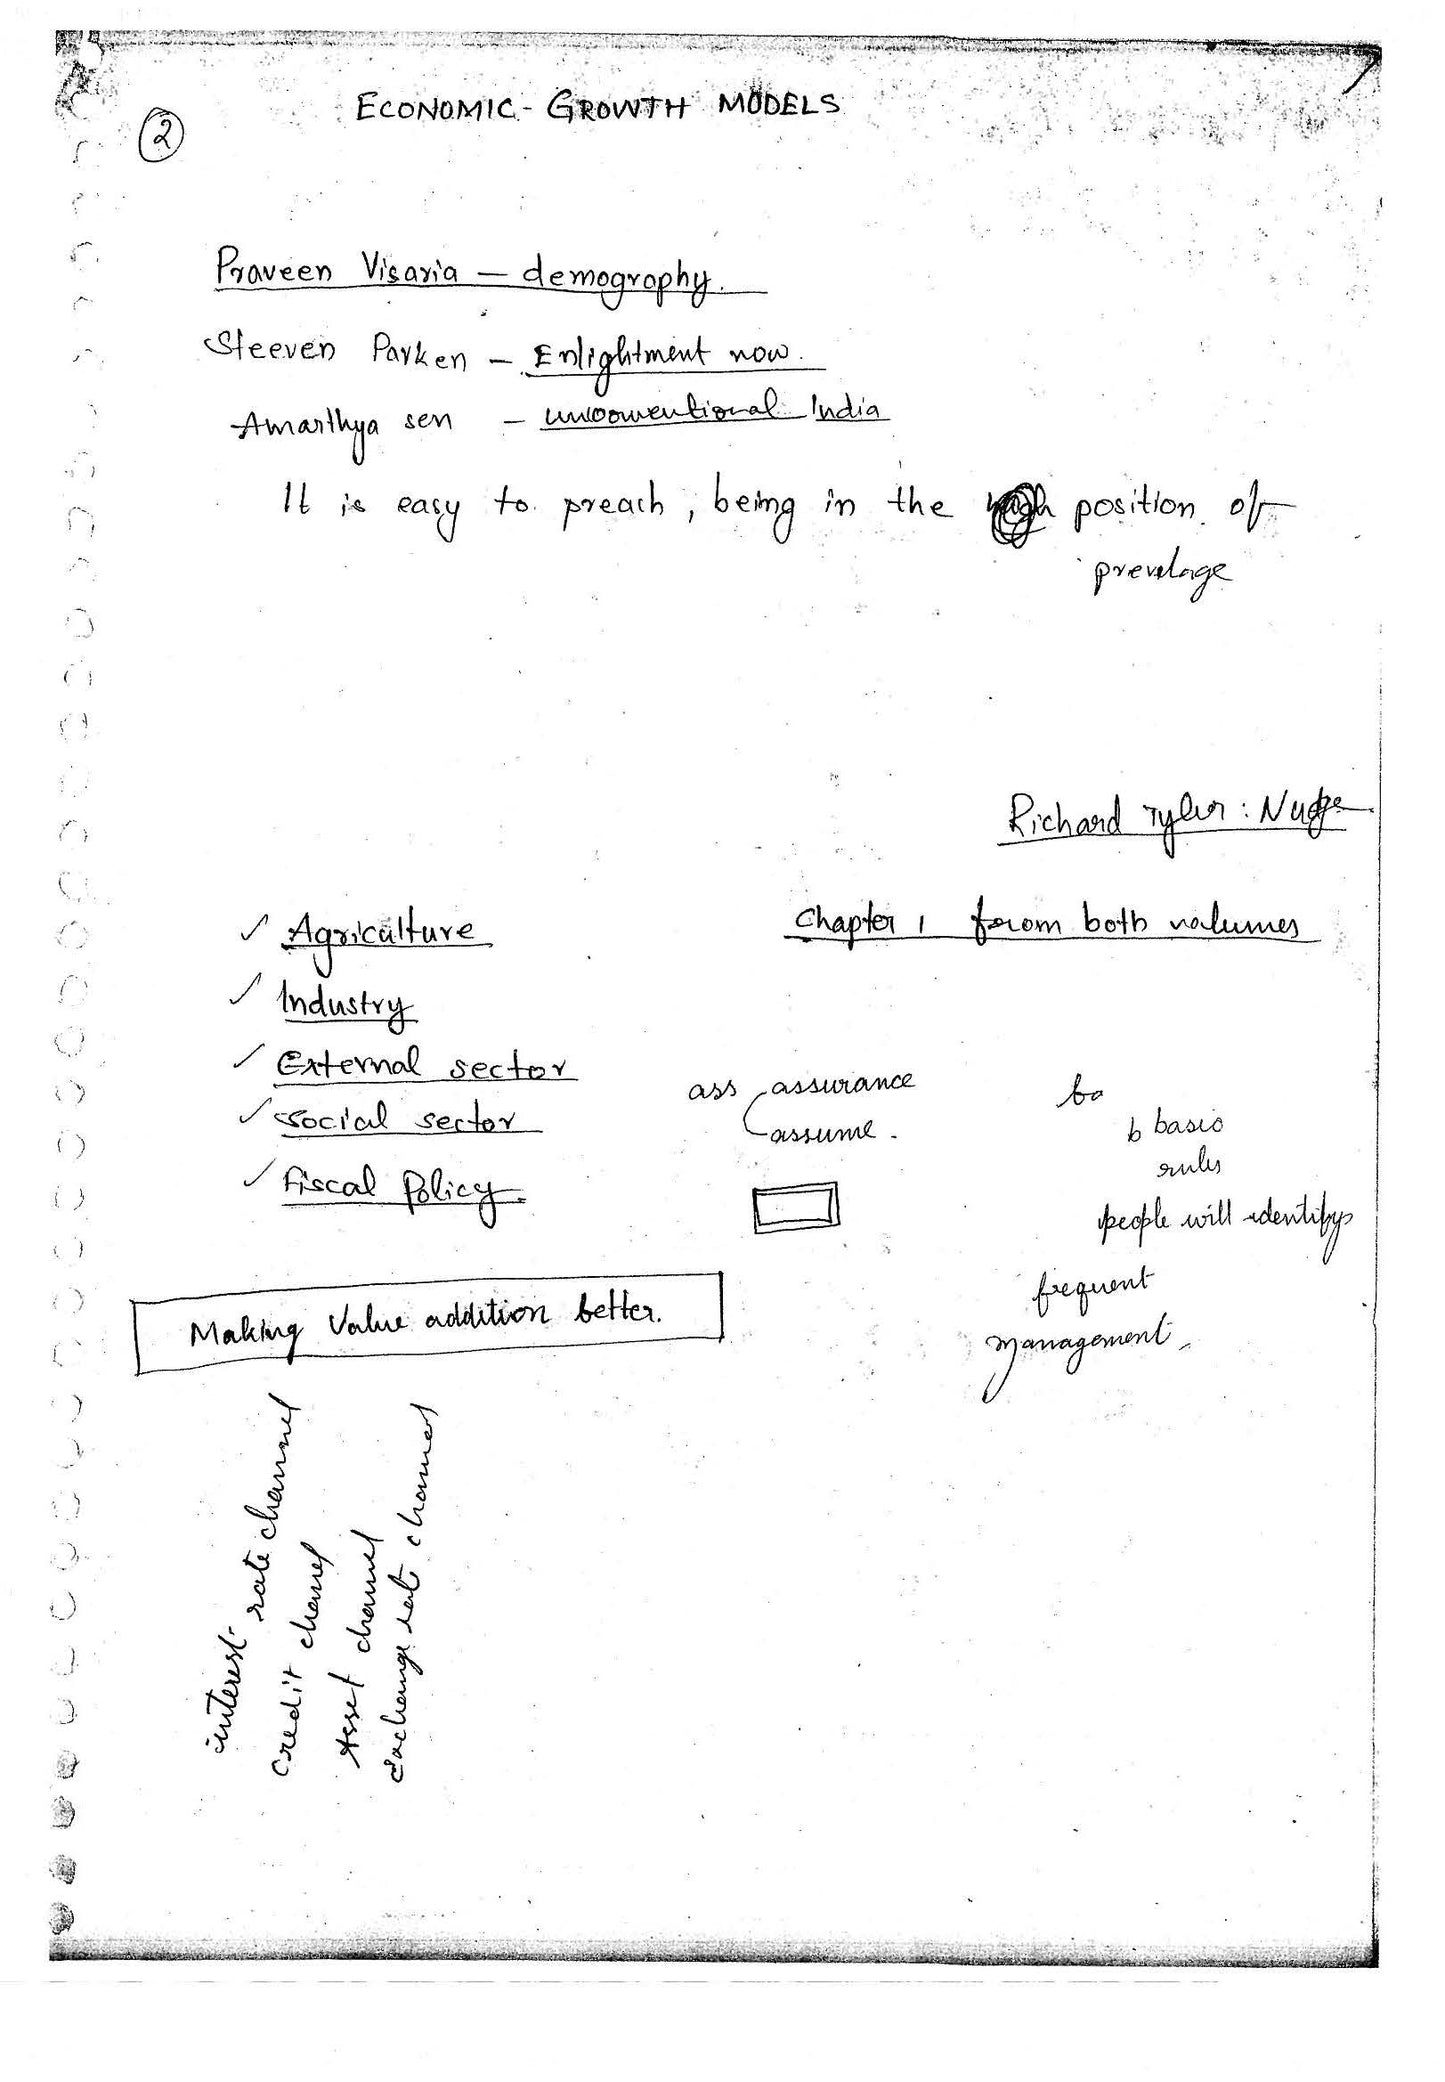 ECONOMIC - GROWTH MODELS
2
Praveen Visaria — demography.
Steeven Parken — Enlightment now.
Amarthya sen — unconventional India
It is easy to preach, being in the position of
prevelage
Richard Tyler : Nudge
✓ Agriculture
Chapter 1 from both volumes
✓ Industry
✓ External sector
✓ Social sector
✓ Fiscal Policy.
ass assurance
assume.
ba
b basic
rules
people will identify
frequent
management
Making Value addition better.
interest rate channel
credit channel
Asset channel
Exchange rate channel